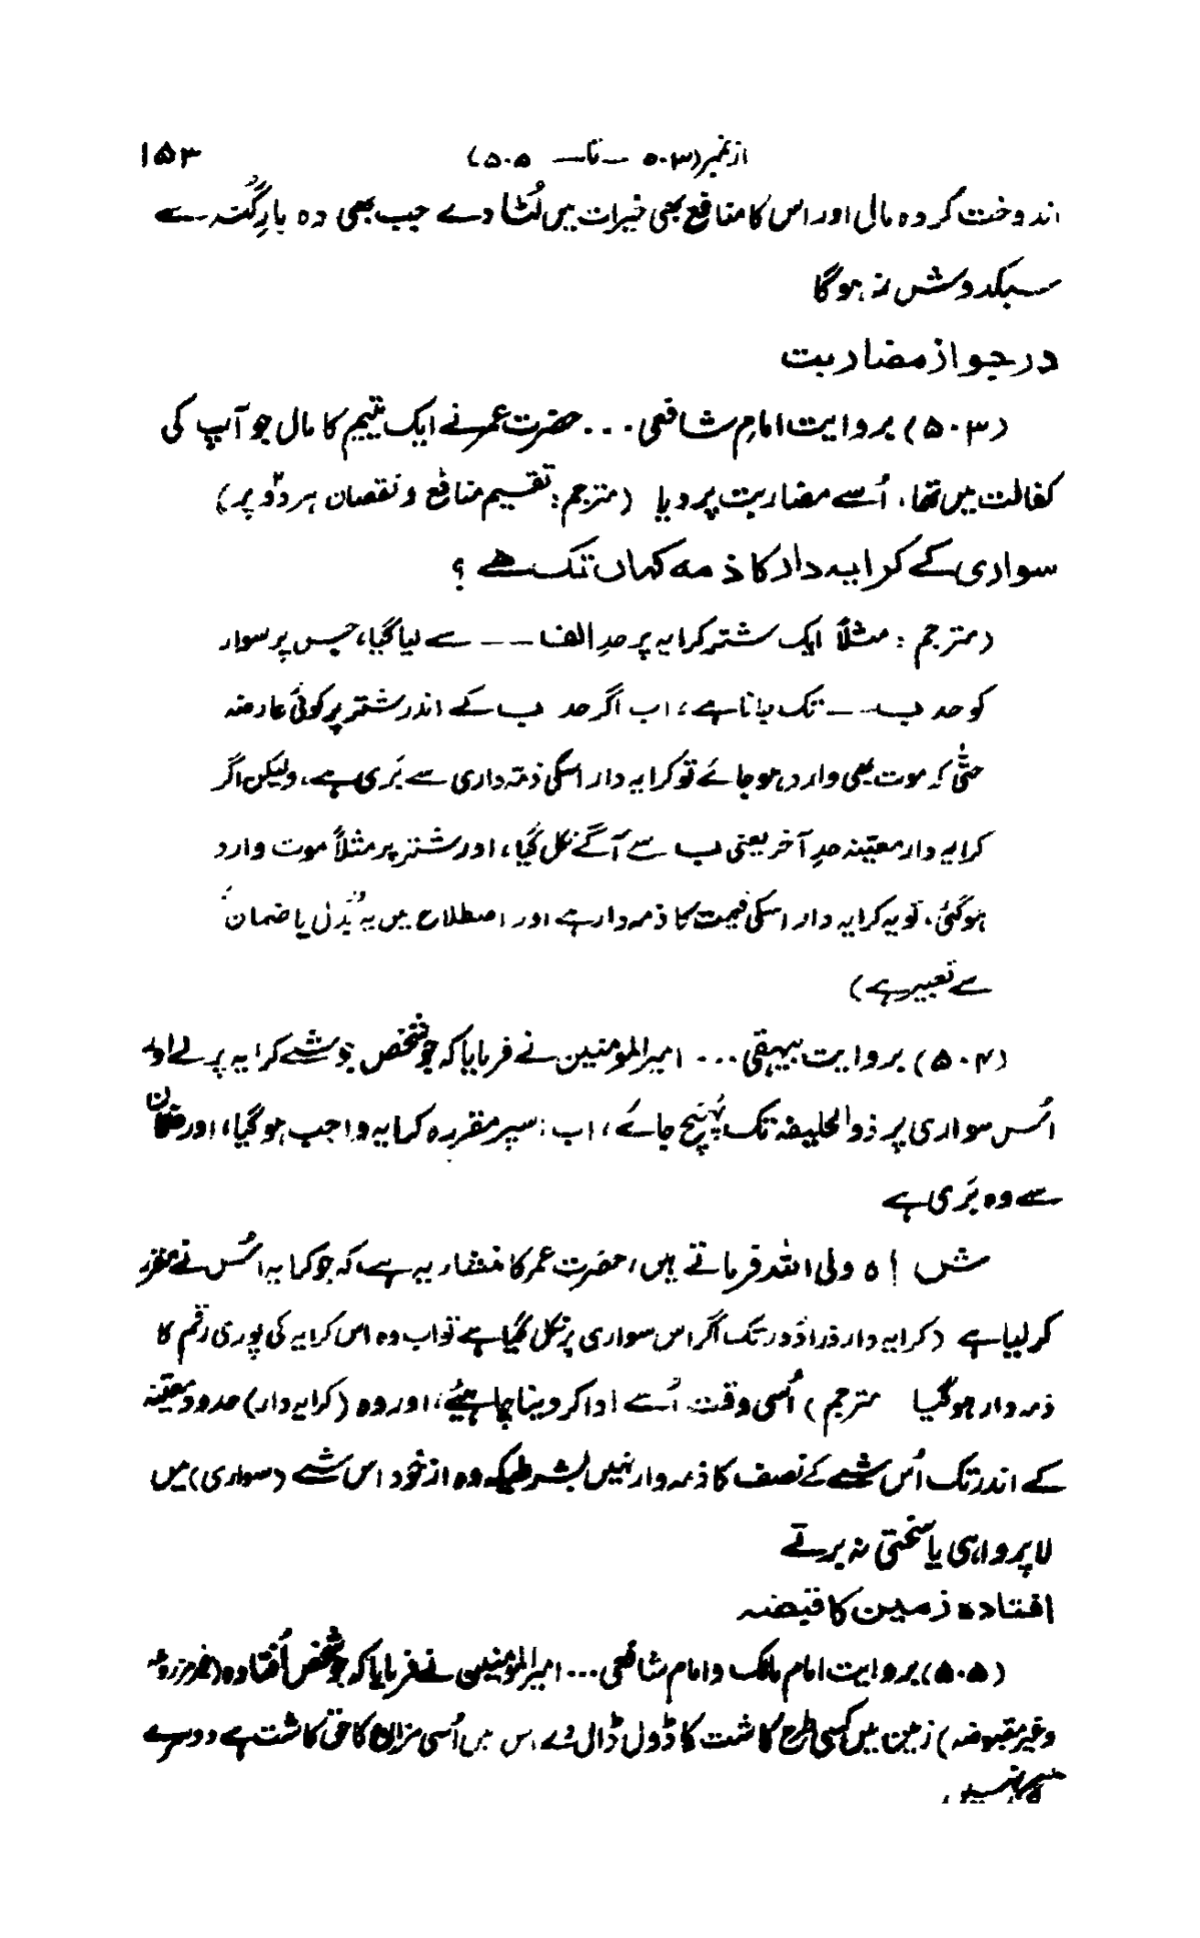 از نمبر (۵۰۳ — تا — ۵۰۵) ۱۵۳
اندوخت کردہ مالی اور اس کا منافع بھی خیرات میں لُٹا دے جب بھی وہ بارِ گُنہ سے
سبکدوش نہ ہوگا
در جواز مضاربت
(۵۰۳) بروایت امامِ شافعی ... حضرت عمر نے ایک یتیم کا مال جو آپ کی
کفالت میں تھا، اُسے مضاربت پر دیا (مترجم: تقسیم منافع و نقصان ہر دو پر)
سواری کے کرایہ دار کا ذمہ کہاں تک ہے ؟
(مترجم : مثلاً ایک شتر کرایہ پر حدِ الف -- سے لیا گیا، جس پر سوار
کو حد ب -- تک جانا ہے، اب اگر حد ب کے اندر شتر پر کوئی عارضہ
حتّٰی کہ موت بھی وارد ہو جائے تو کرایہ دار اسکی ذمہ داری سے بَری ہے، ولیکن اگر
کرایہ دار معیّنہ حدِ آخر یعنی ب سے آگے نکل گیا، اور شتر پر مثلاً موت وارد
ہوگئی، تو یہ کرایہ دار اسکی قیمت کا ذمہ دار ہے اور اصطلاح میں یہ بُدل یا ضمان
سے تعبیر ہے)
(۵۰۴) بروایت بیہقی ... امیر المومنین نے فرمایا کہ جو شخص جو شے کرایہ پر لے اور
اُس سواری پر ذوالحلیفہ تک پُہنچ جائے، اب: سپر مقررہ کرایہ واجب ہو گیا، اور ضمان
سے وہ بَری ہے
ش ا ہ ولی اللہ فرماتے ہیں، حضرت عمر کا منشاء یہ ہے کہ جو کرایہ اُس نے مقرر
کر لیا ہے (کرایہ دار ذرا دُور تک اگر اس سواری پر نکل گیا ہے تو اب وہ اس کرایہ کی پوری رقم کا
ذمہ دار ہوگیا مترجم) اُسی وقت اُسے ادا کر دینا چاہیئے، اور وہ (کرایہ دار) حدود معیّنہ
کے اندر تک اُس شے کے نصف کا ذمہ دار نہیں بشرطیکہ وہ از خود اس شے (سواری) میں
لا پرواہی یا سختی نہ برتے
افتادہ زمین کا قبضہ
(۵۰۵) بروایت امام مالک و امام شافعی ... امیر المومنین نے فرمایا کہ جو شخص اُفتادہ (غیر مزروعہ
و غیر مقبوضہ) زمین میں کسی طرح کاشت کا ڈول ڈال دے اس میں اُسی مزارع کا حق کاشت ہے دوسرے
کا نہیں